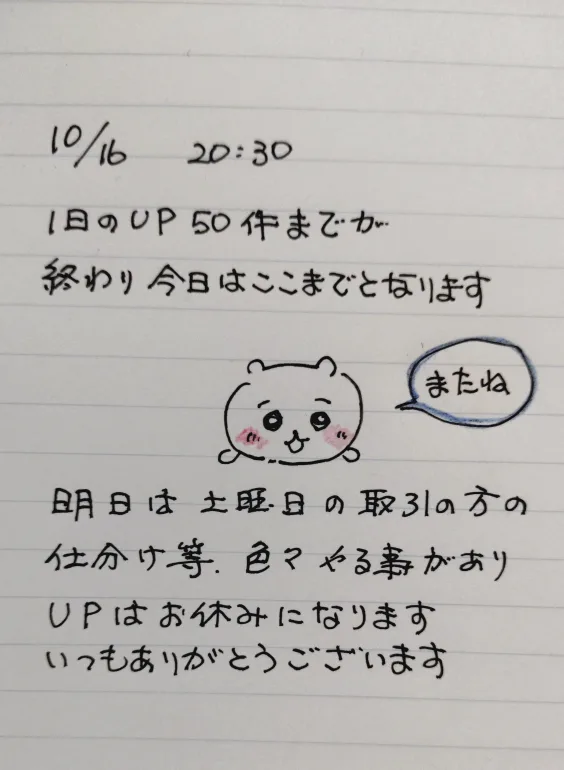 10/16 20:30
1日のUP 50件までが
終わり 今日はここまでとなります
またね
明日は 土曜日の取引の方の
仕分け等、色々やる事があり
UPはお休みになります
いつもありがとうございます